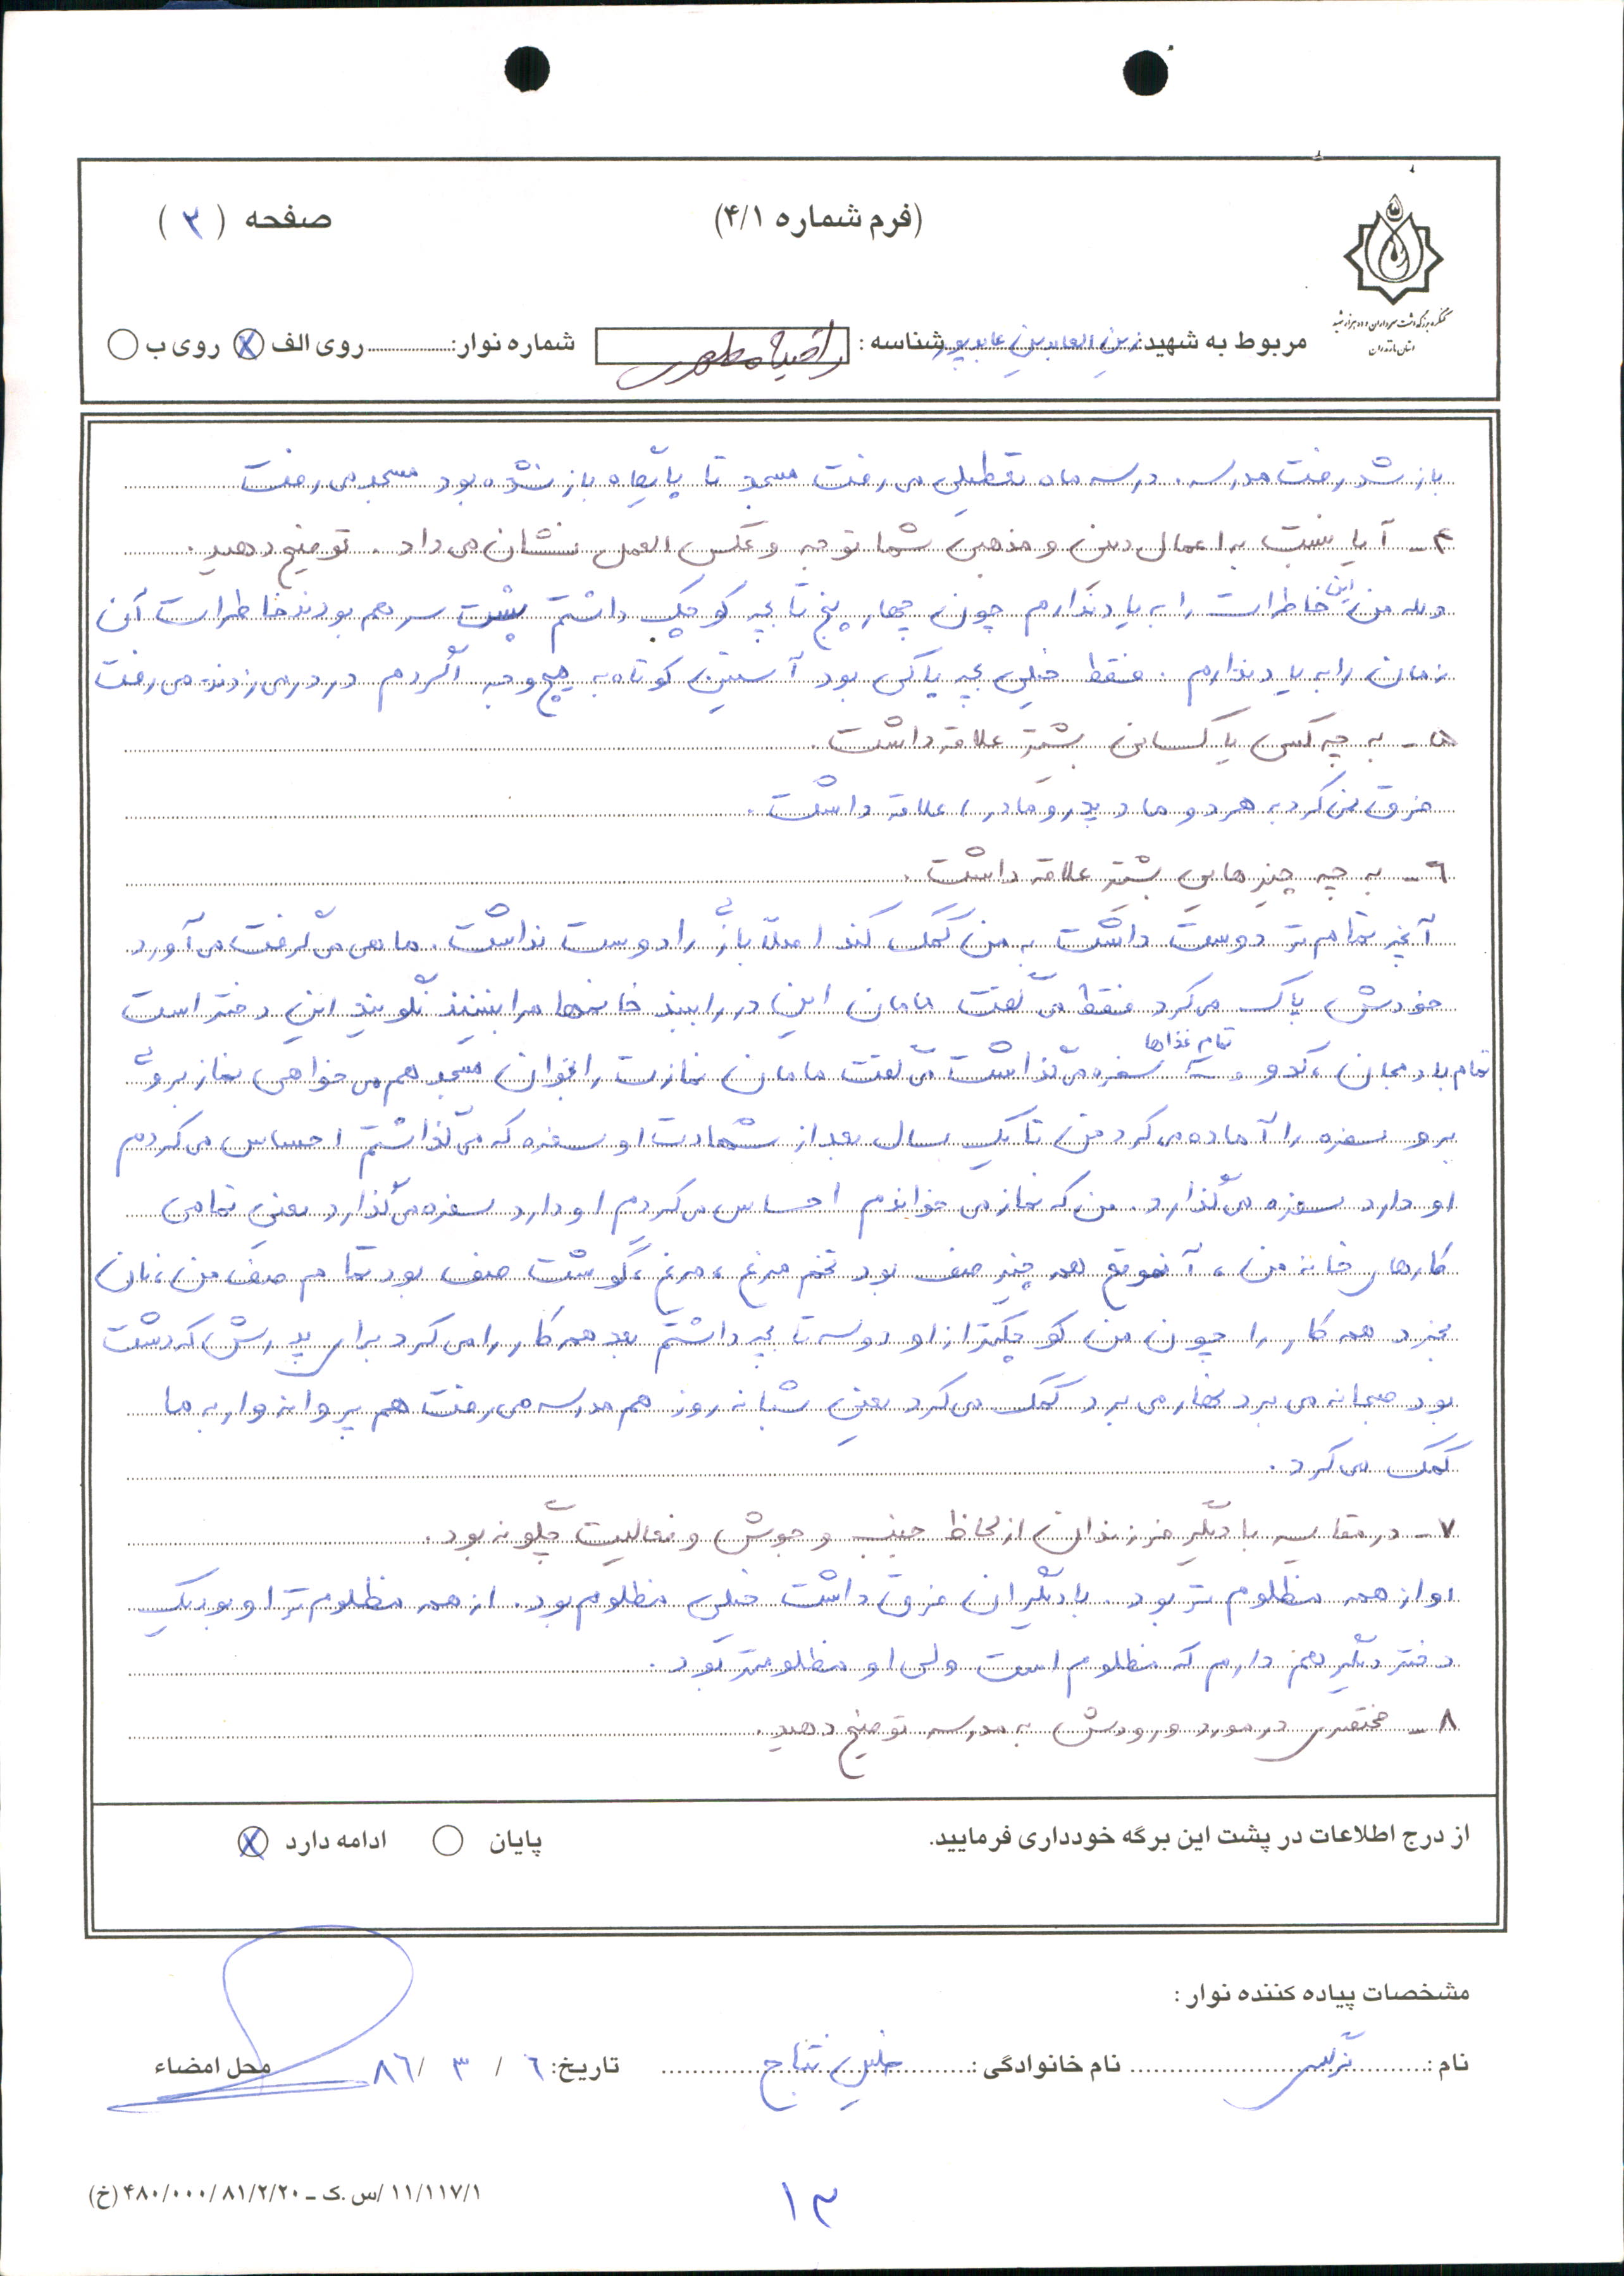 (فرم شماره ۴/۱)
صفحه ( ۳ )
کنگره بزرگداشت سرداران و ده هزار شهید
استان مازندران
مربوط به شهید: زین العابدین عابدپور شناسه : شماره نوار: روی الف روی ب
باز شد رفت مدرسه. در سه ماه تعطیلی می رفت مسجد تا پایگاه باز نشده بود مسجد می رفت
۴- آیا نسبت به اعمال دینی و مذهبی شما توجه و عکس العمل نشان می داد. توضیح دهید.
من این خاطرات را به یاد ندارم چون چهار پنج تا بچه کوچک داشتم پشت سر هم بودند خاطرات آن
زمان را به یاد ندارم. فقط خیلی بچه پاکی بود آستین کوتاه به هیچ وجه اگر دم در در می زدند می رفت
۵- به چه کسی یا کسانی بیشتر علاقه داشت.
فرق نمی کرد به هر دو ما (پدر و مادر) علاقه داشت.
٦- به چه چیزهایی بیشتر علاقه داشت.
آنچه تمام تر دوست داشت به من کمک کند اصلاً بازی را دوست نداشت. ماهی می گرفت می آورد
خودش پاک می کرد فقط می گفت مامان این در را ببند خانمها مرا نبینند نگویند این دختر است
تمام بادمجان، کدو و تمام غذاها سفره می گذاشت می گفت مامان نمازت را بخوان مسجد هم می خواهی نماز بروی
برو سفره را آماده می کرد من تا یک سال بعد از شهادت او سفره که می گذاشتم احساس می کردم
او دارد سفره می گذارد. من که نماز می خواندم احساس می کردم او دارد سفره می گذارد یعنی تمامی
کارهای خانه من، آنموقع همه چیز صف بود تخم مرغ، مرغ، گوشت صف بود تمام صف من، نان
بخرد همه کار را چون من کوچکتر از او دو سه تا بچه داشتم بعد همه کار را می کرد برای پدرش که دشت
بود صبحانه می برد نهار می برد کمک می کرد یعنی شبانه روز هم مدرسه می رفت هم پروانه وار به ما
کمک می کرد.
۷- در مقایسه با دیگر فرزندان از لحاظ جنب و جوش و فعالیت چگونه بود.
او از همه مظلوم تر بود. با دیگران فرق داشت خیلی مظلوم بود. از همه مظلوم تر او بود یک
دختر دیگر هم دارم که مظلوم است ولی او مظلومتر بود.
۸- مختصری در مورد ورودش به مدرسه توضیح دهید.
از درج اطلاعات در پشت این برگه خودداری فرمایید.
پایان ادامه دارد
مشخصات پیاده کننده نوار :
نام : نرگس نام خانوادگی : خلیلی نتاج تاریخ: ٦ / ۳ / ۸٦ محل امضاء
۱۱/۱۱۷/۱/س.ک – ۴۸۰/۰۰۰/۸۱/۲/۲۰ (خ)
۱۳